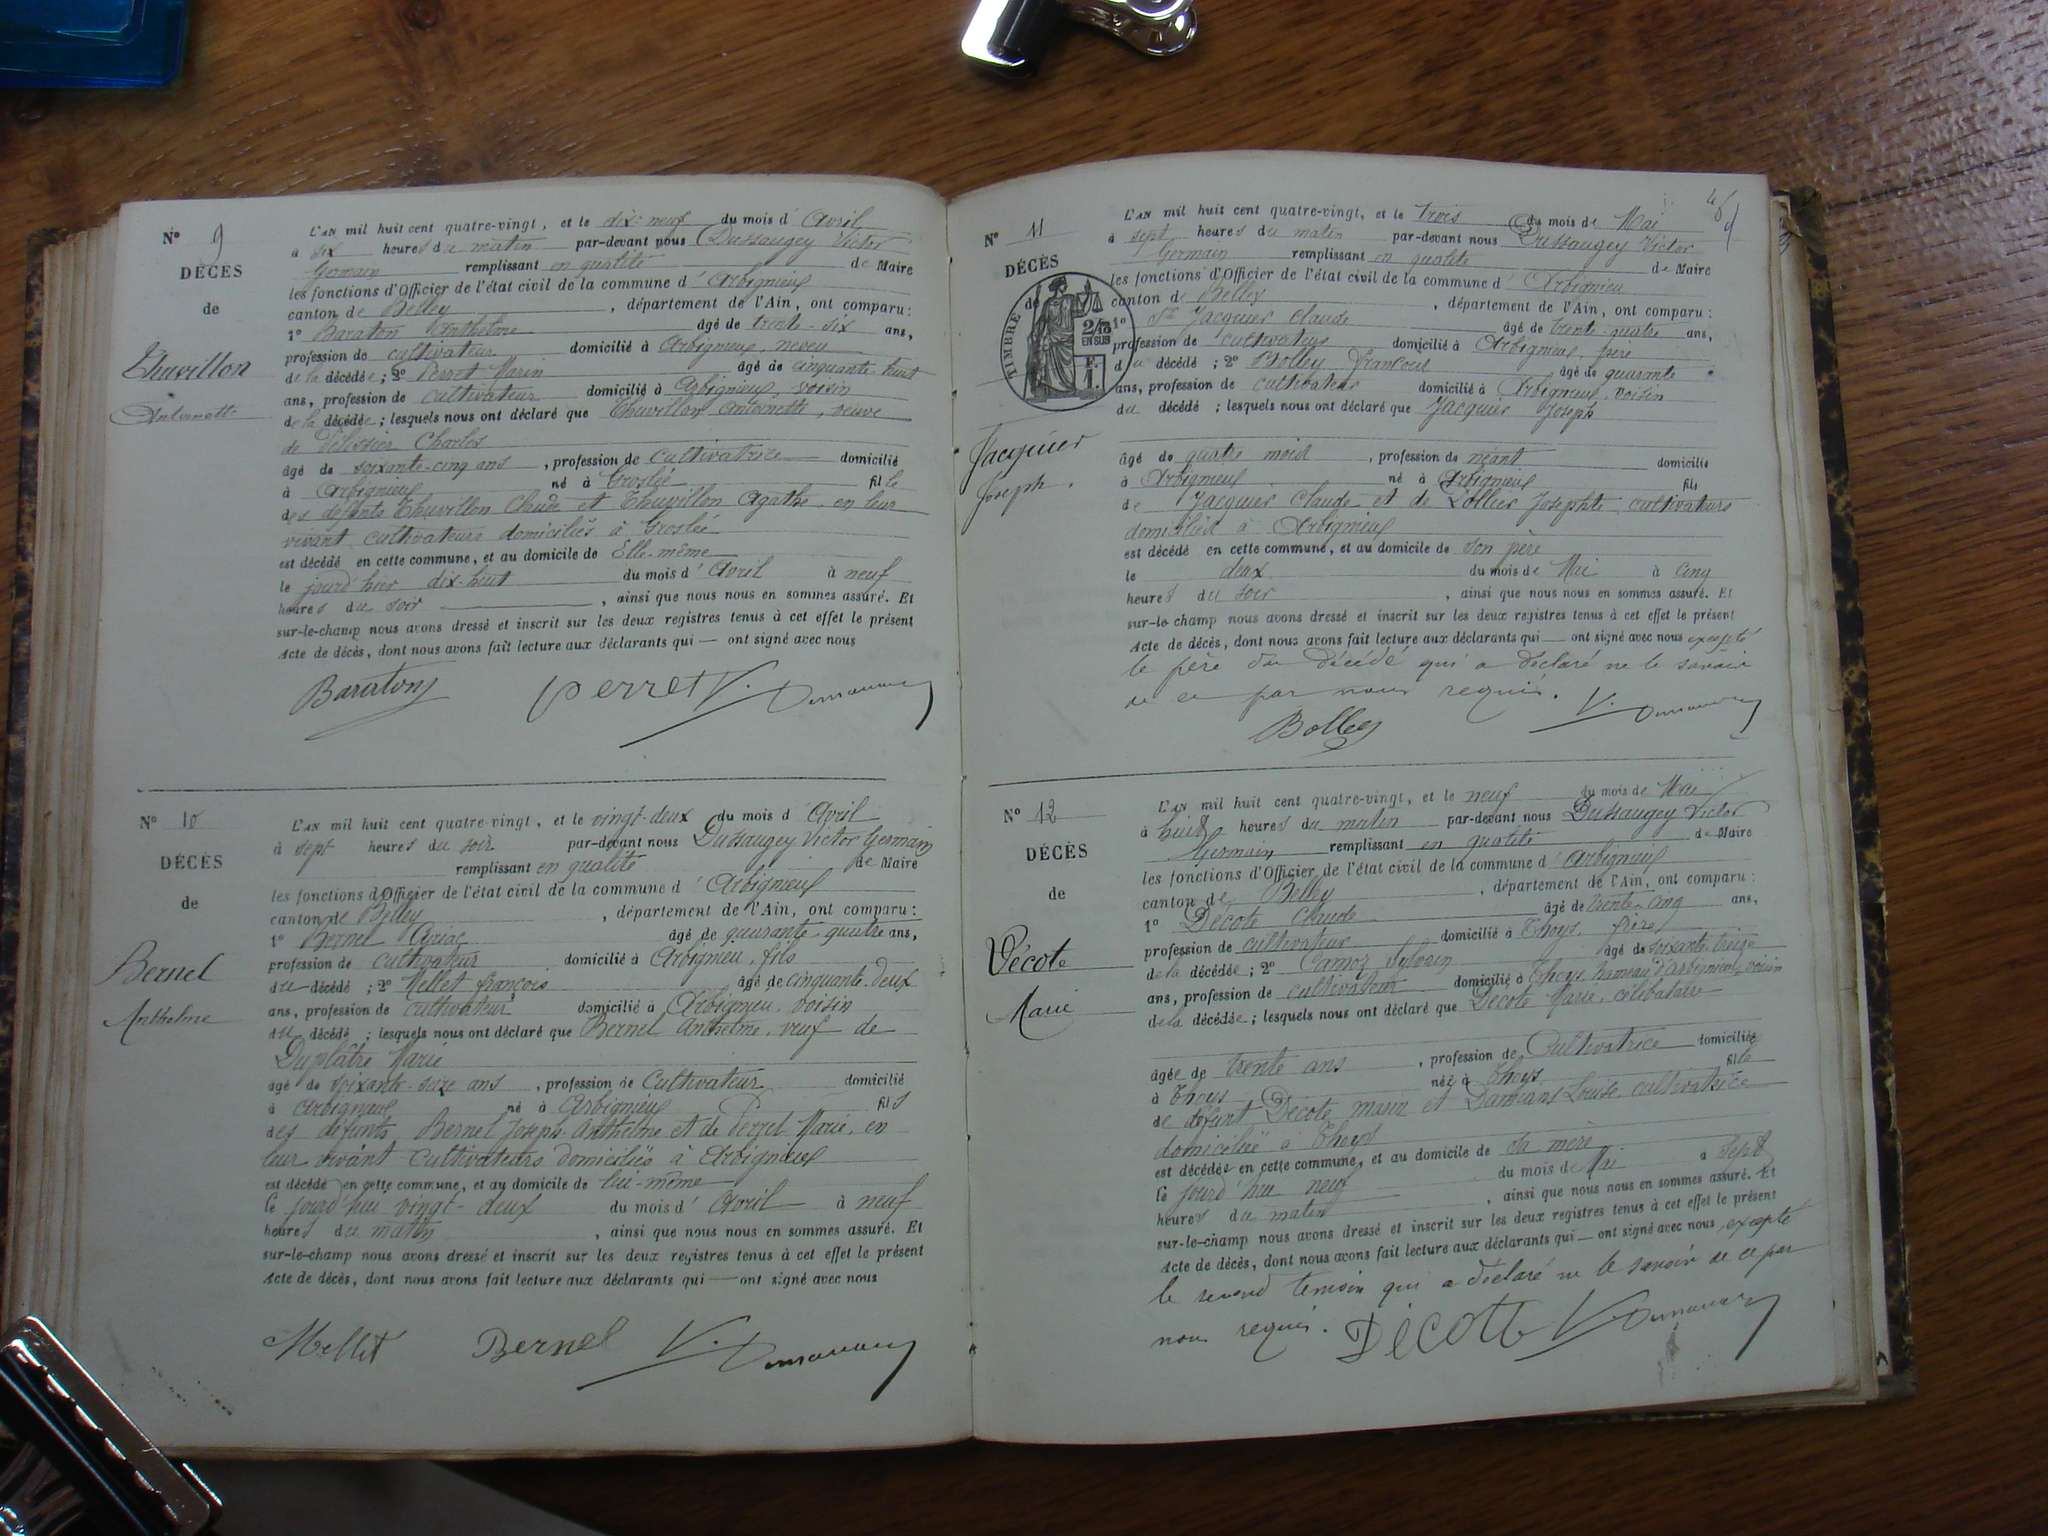 N° 9
DÉCÈS
de
Thuvillon
Antoinette
L'AN mil huit cent quatre-vingt, et le dix-neuf du mois d'Avril
à six heures du matin par-devant nous Dussaugey Victor
Germain remplissant en qualité de Maire
les fonctions d'Officier de l'état civil de la commune d'Arbignieu
canton de Belley, département de l'Ain, ont comparu:
1° Baraton Anthelme âgé de trente-six ans,
profession de cultivateur domicilié à Arbignieu, neveu
de la décédée; 2° Perret Marin âgé de cinquante-huit
ans, profession de cultivateur domicilié à Arbignieu, voisin
de la décédée; lesquels nous ont déclaré que Thuvillon Antoinette, veuve
de Pélissier Charles
âgé de soixante-cinq ans, profession de cultivatrice domicilié
à Arbignieu né à Groslée fille
des défunts Thuvillon Claude et Thuvillon Agathe, en leur
vivant cultivateurs domiciliés à Groslée
est décédé en cette commune, et au domicile de Elle-même
le jourd'hier dix-huit du mois d'Avril à neuf
heures du soir, ainsi que nous nous en sommes assuré. Et
sur-le-champ nous avons dressé et inscrit sur les deux registres tenus à cet effet le présent
Acte de décès, dont nous avons fait lecture aux déclarants qui — ont signé avec nous
Baraton Perret V. Dussaugey
N° 10
DÉCÈS
de
Bernel
Anthelme
L'AN mil huit cent quatre-vingt, et le vingt-deux du mois d'Avril
à sept heures du soir par-devant nous Dussaugey Victor Germain
remplissant en qualité de Maire
les fonctions d'Officier de l'état civil de la commune d'Arbignieu
canton de Belley, département de l'Ain, ont comparu:
1° Bernel Cyriac âgé de quarante-quatre ans,
profession de cultivateur domicilié à Arbignieu, fils
du décédé; 2° Mellet françois âgé de cinquante-deux
ans, profession de cultivateur domicilié à Arbignieu, voisin
du décédé; lesquels nous ont déclaré que Bernel Anthelme, veuf de
Duplâtre Marie
âgé de soixante-seize ans, profession de cultivateur domicilié
à Arbignieu né à Arbignieu fils
des défunts Bernel Joseph-Anthelme et de Perret Marie, en
leur vivant cultivateurs domiciliés à Arbignieu
est décédé en cette commune, et au domicile de lui-même
le jourd'hui vingt-deux du mois d'Avril à neuf
heures du matin, ainsi que nous nous en sommes assuré. Et
sur-le-champ nous avons dressé et inscrit sur les deux registres tenus à cet effet le présent
Acte de décès, dont nous avons fait lecture aux déclarants qui — ont signé avec nous
Mellet Bernel V. Dussaugey
N° 11
DÉCÈS
de
TIMBRE
2/10
EN SUS
F.
1.
Jacquier
Joseph.
L'AN mil huit cent quatre-vingt, et le trois du mois de Mai
à sept heures du matin par-devant nous Dussaugey Victor
Germain remplissant en qualité de Maire
les fonctions d'Officier de l'état civil de la commune d'Arbignieu
canton de Belley, département de l'Ain, ont comparu:
1° Jacquier Claude âgé de trente-quatre ans,
profession de cultivateur domicilié à Arbignieu, père
du décédé; 2° Bolley françois âgé de quarante
ans, profession de cultivateur domicilié à Arbignieu, voisin
du décédé; lesquels nous ont déclaré que Jacquier Joseph
âgé de quatre mois, profession de néant domicilié
à Arbignieu né à Arbignieu fils
de Jacquier Claude et de Lollier Josephte cultivateurs
domiciliés à Arbignieu
est décédé en cette commune, et au domicile de son père
le deux du mois de Mai à cinq
heures du soir, ainsi que nous nous en sommes assuré. Et
sur-le-champ nous avons dressé et inscrit sur les deux registres tenus à cet effet le présent
Acte de décès, dont nous avons fait lecture aux déclarants qui — ont signé avec nous excepté
le père du décédé qui a déclaré ne le savoir
de ce par nous requis.
Bolley V. Dussaugey
N° 12
DÉCÈS
de
Décote
Marie
L'AN mil huit cent quatre-vingt, et le neuf du mois de Mai
à huit heures du matin par-devant nous Dussaugey Victor
Germain remplissant en qualité de Maire
les fonctions d'Officier de l'état civil de la commune d'Arbignieu
canton de Belley, département de l'Ain, ont comparu:
1° Décote Claude âgé de trente-cinq ans,
profession de cultivateur domicilié à Thoys, frère
de la décédée; 2° Sylvain âgé de soixante-treize
ans, profession de cultivateur domicilié à Thoys hameau d'Arbignieu, voisin
de la décédée; lesquels nous ont déclaré que Décote Marie, célibataire
âgée de trente ans, profession de Cultivatrice domiciliée
à Thoys née à Thoys fille
de défunt Décote Marin et Damians Louise, cultivatrice
domiciliée à Thoys
est décédée en cette commune, et au domicile de sa mère
le jourd'hui neuf du mois de Mai à sept
heures du matin, ainsi que nous nous en sommes assuré. Et
sur-le-champ nous avons dressé et inscrit sur les deux registres tenus à cet effet le présent
Acte de décès, dont nous avons fait lecture aux déclarants qui — ont signé avec nous excepté
le second témoin qui a déclaré ne le savoir de ce par
nous requis. Décotte V. Dussaugey